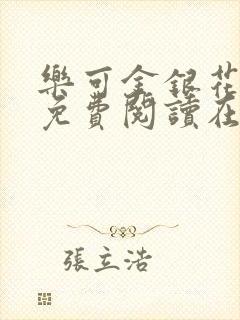 樂可金銀花
免費閱讀在
張立浩